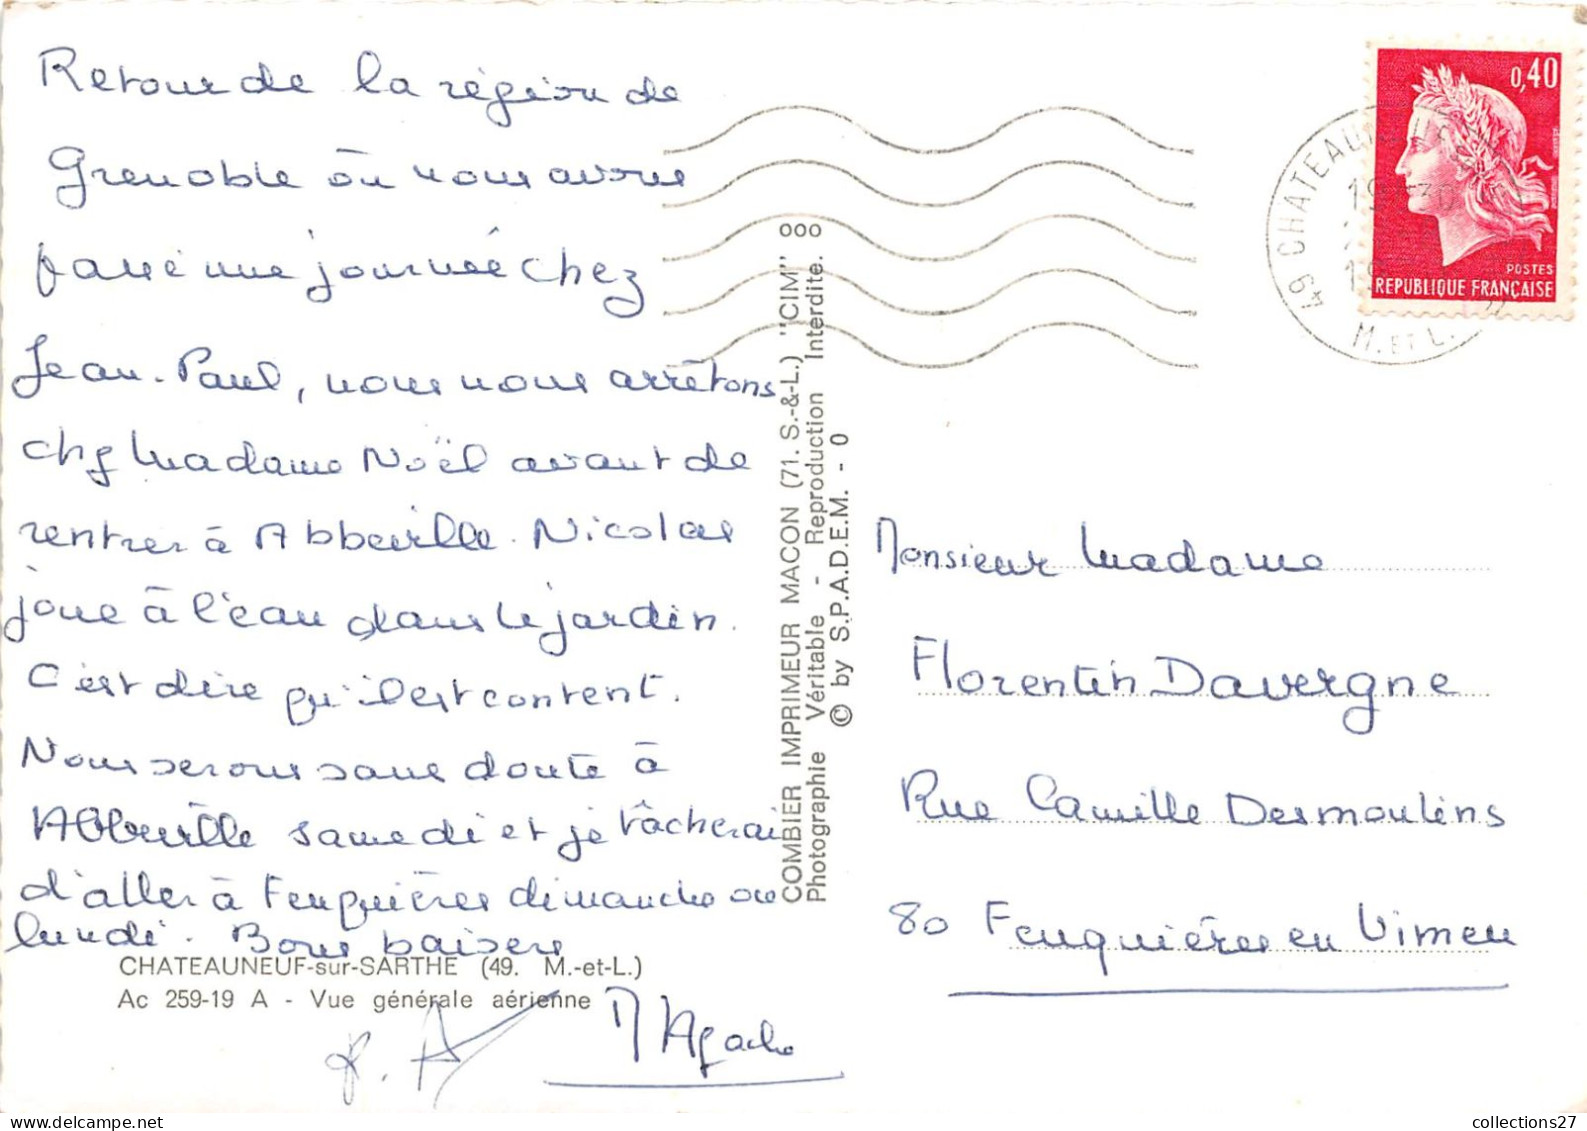 Retour de la région de
Grenoble où nous avons
passé une journée chez
Jean-Paul, nous nous arrêtons
chez Madame Noël avant de
rentrer à Abbeville. Nicolas
joue à l'eau dans le jardin.
C'est dire qu'il est content.
Nous serons sans doute à
Abbeville samedi et je tâcherai
d'aller à Feuquières dimanche ou
lundi. Bons baisers
CHATEAUNEUF-sur-SARTHE (49. M.-et-L.)
Ac 259-19 A - Vue générale aérienne
M Agache
COMBIER IMPRIMEUR MACON (71. S.-&-L.) "CIM" ooo
Photographie Véritable - Reproduction Interdite.
© by S.P.A.D.E.M. - 0
0,40
POSTES
REPUBLIQUE FRANÇAISE
49 CHATEAUN
M. ET L.
Monsieur Madame
Florentin Davergne
Rue Camille Desmoulins
80 Feuquières en Vimeu
collections27